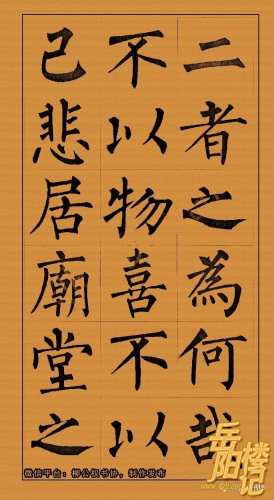 二者之為何哉
不以物喜不以
己悲居廟堂之
微信平台：柳公权书协，制作发布
岳阳楼记